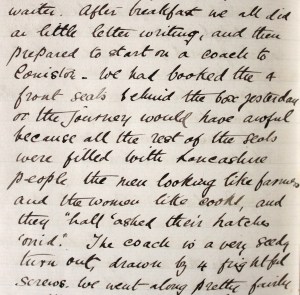 waiter. After breakfast we all did
a little letter writing, and then
prepared to start on a coach to
Coniston. We had booked the 4
front seats behind the box yesterday
or the journey would have awful
because all the rest of the seats
were filled with Lancashire
people the men looking like farmers
and the women like cooks, and
they "hall" ashed their hatches
The coach is a very seedy
turn out, drawn by 4 frightful
screws. We went along pretty fairly